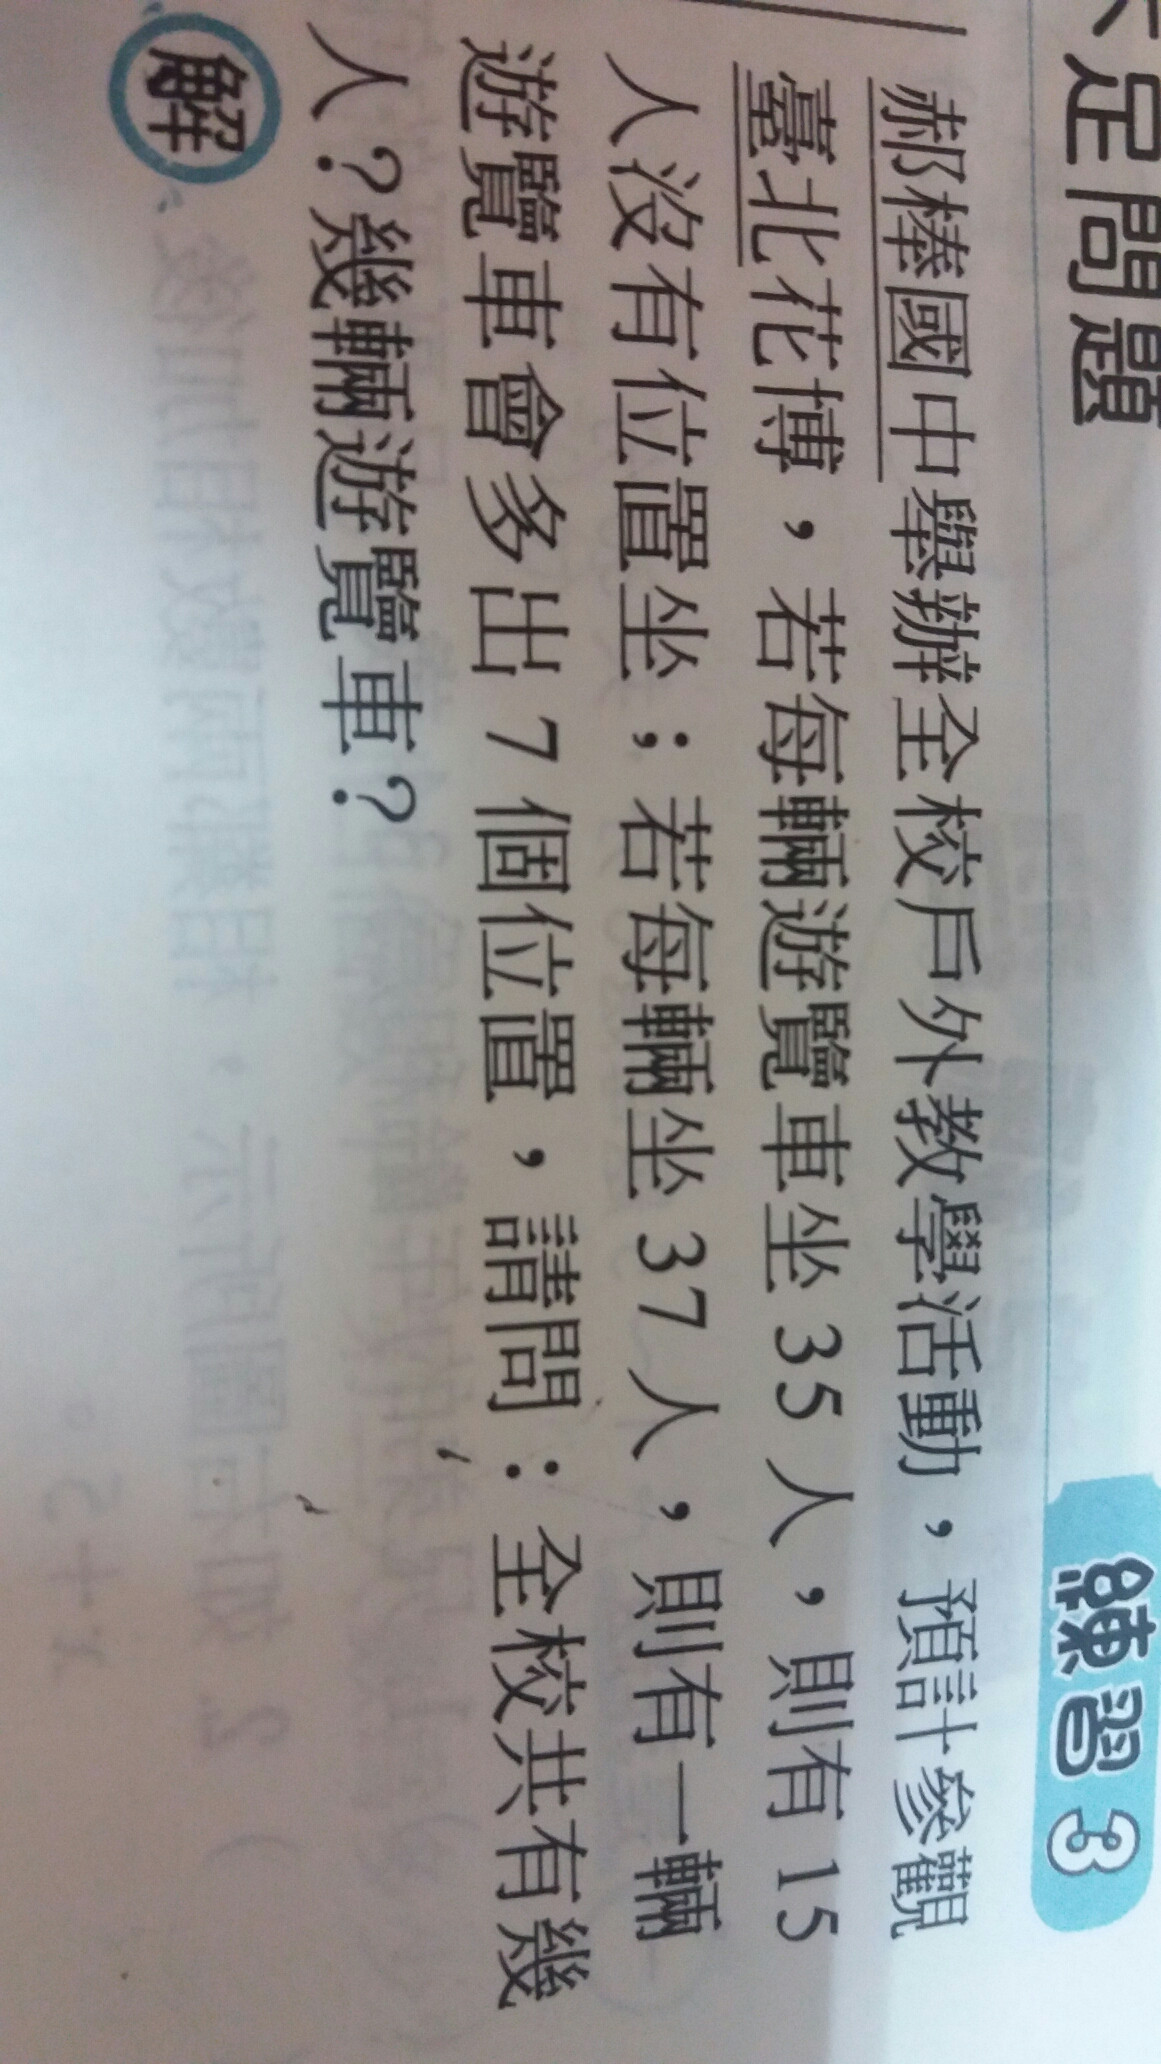 足問題
練習3
郝棒國中舉辦全校戶外教學活動，預計參觀
臺北花博，若每輛遊覽車坐35人，則有15
人沒有位置坐；若每輛坐37人，則有一輛
遊覽車會多出7個位置，請問：全校共有幾
人？幾輛遊覽車？
解